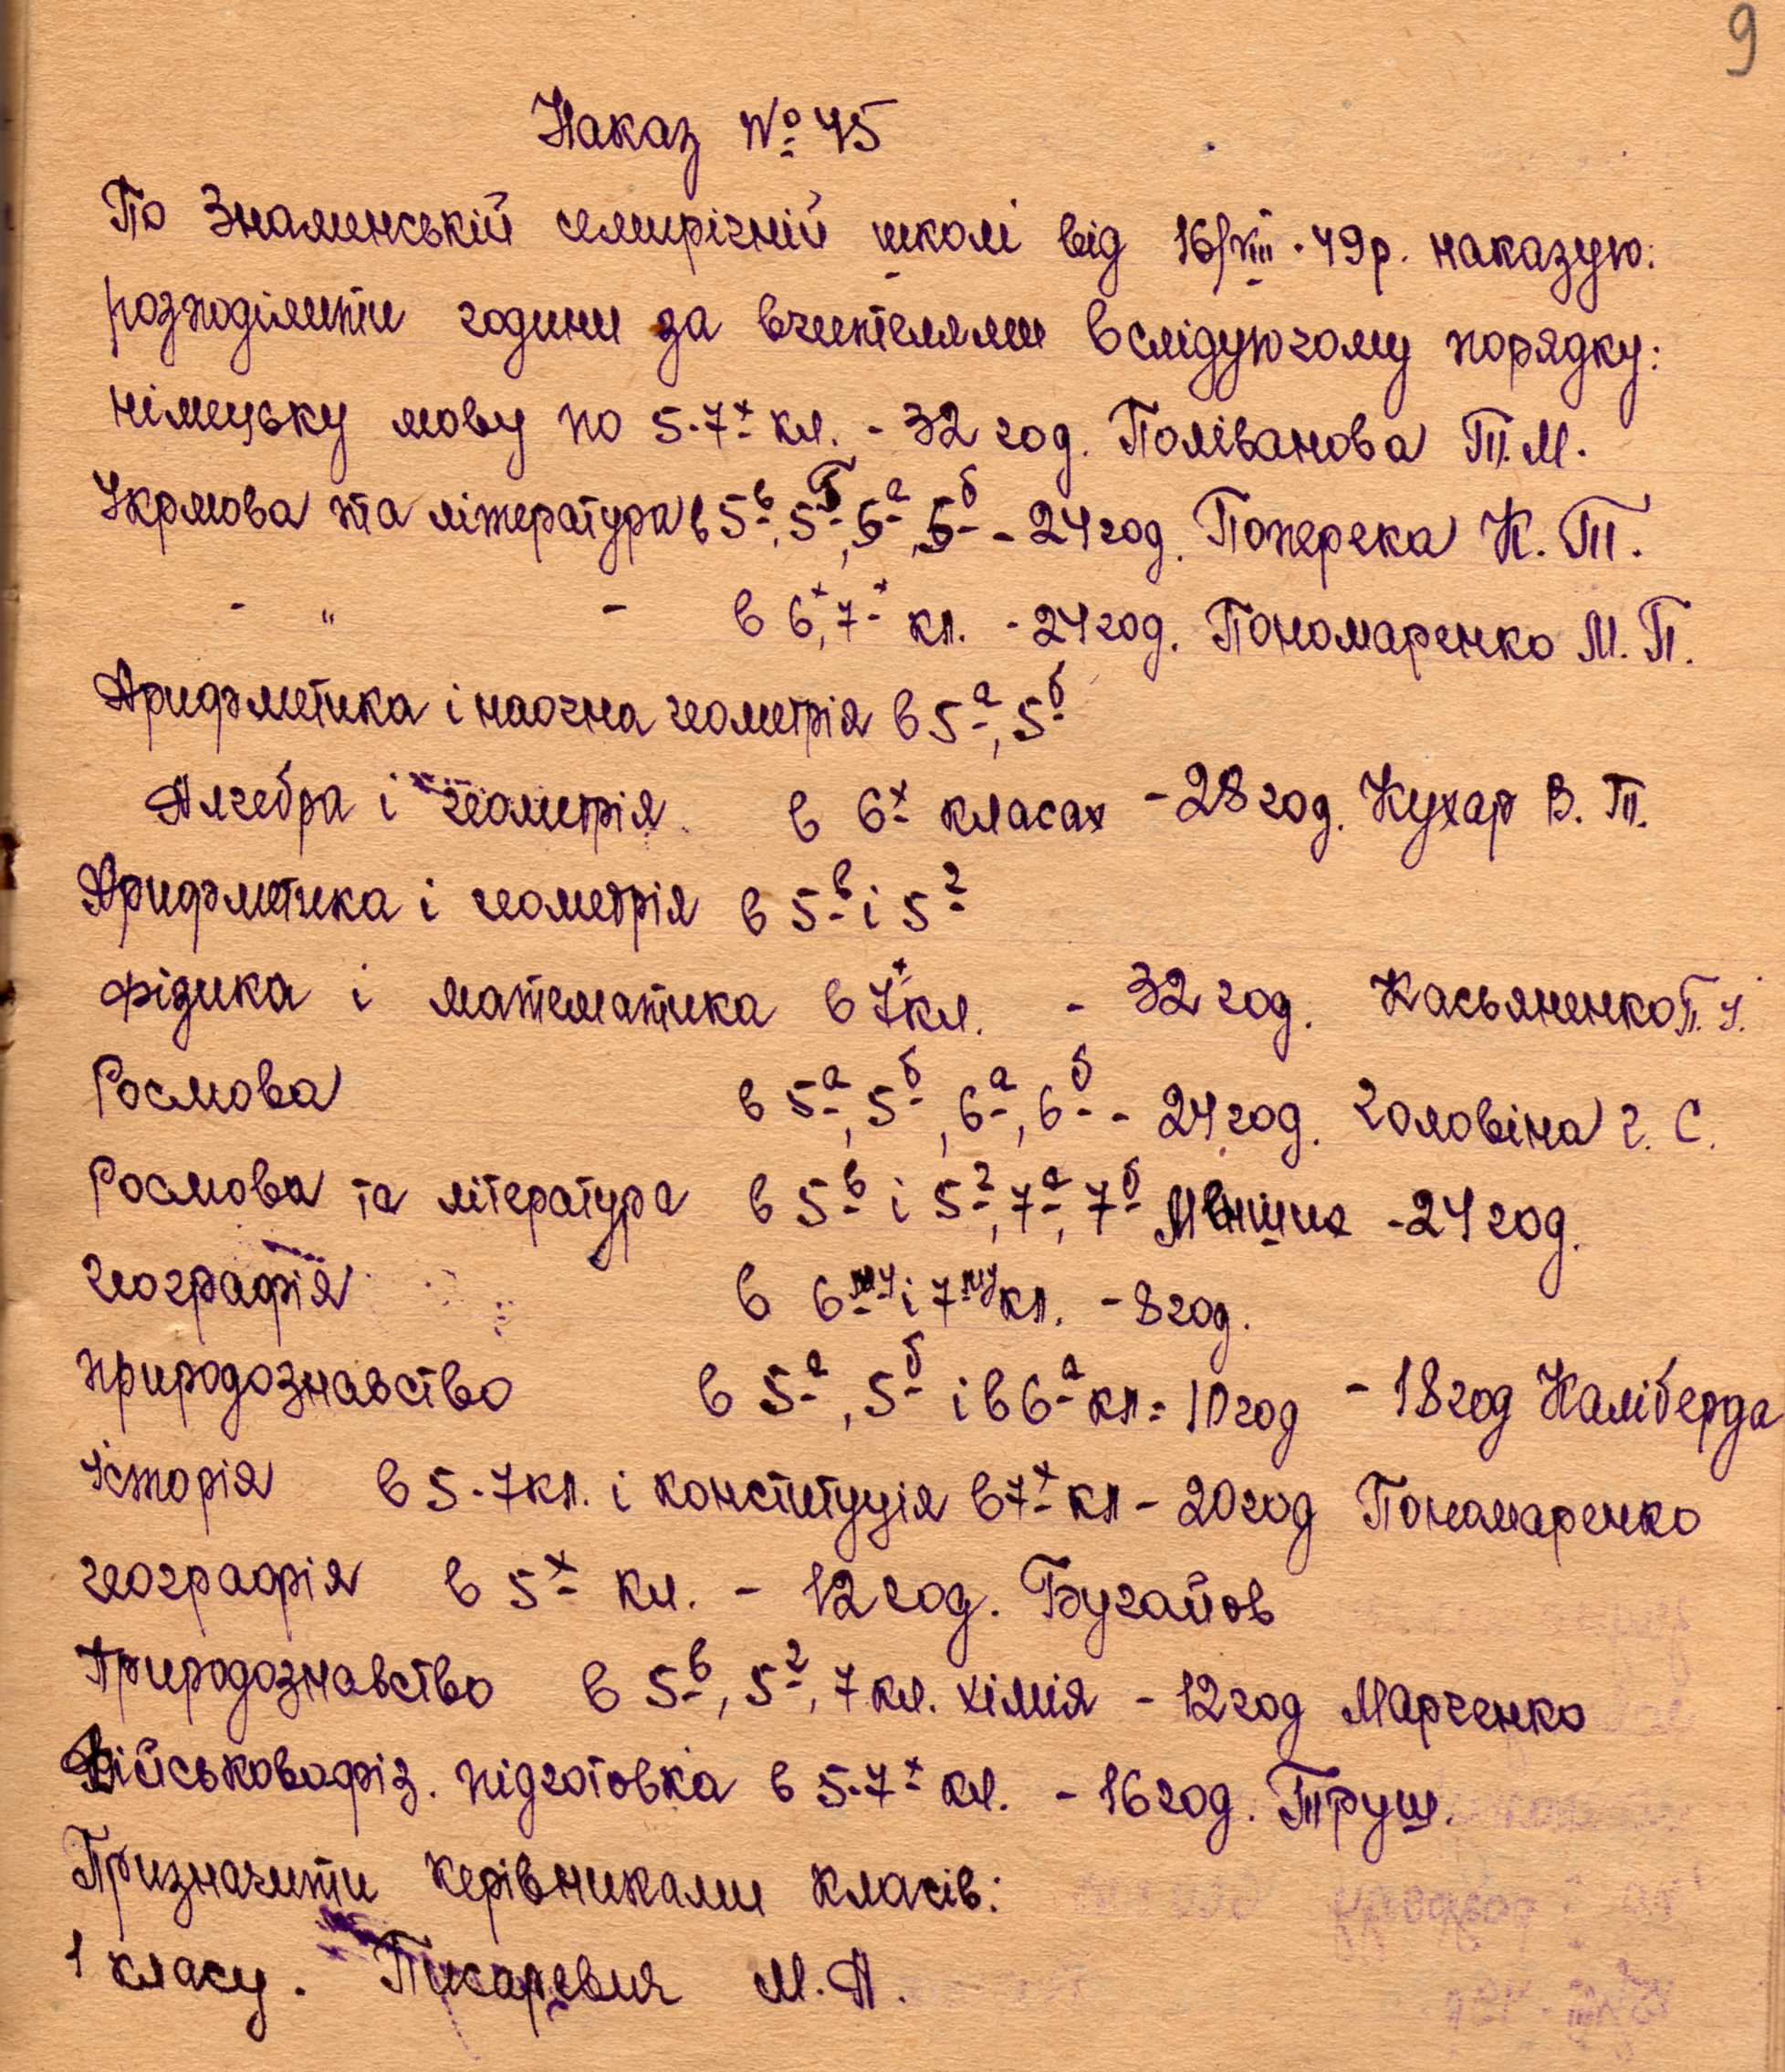 9
Наказ № 45
По Знаменській семирічній школі від 16/VIII. 49р. наказую:
розподілити години за вчителями в слідуючому порядку:
німецьку мову по 5-7х кл. - 32 год. Поліванова Т.М.
Укрмова та література в 5в, 5г, 5а, 5б - 24 год. Поперека К. Т.
- " - в 6х, 7х кл. - 24 год. Пономаренко М. П.
Арифметика і наочна геометрія в 5а, 5б
Алгебра і геометрія в 6х класах - 28 год. Кухар В. Т.
Арифметика і геометрія в 5в і 5г
фізика і математика в 7х кл. - 32 год. Касьяненко П. У.
Росмова в 5а, 5б, 6а, 6б - 24 год. Головіна Г. С.
Росмова та література в 5в і 5г, 7а, 7б - 24 год.
географія в 6му і 7му кл. - 8 год.
природознавство в 5а, 5б і в 6а кл = 10 год - 18 год Каліберда
Історія в 5-7 кл. і конституція в 7х кл - 20 год Пономаренко
географія в 5х кл. - 12 год. Бугайов
Природознавство в 5в, 5г, 7 кл. хімія - 12 год Марченко
Військовофіз. підготовка в 5-7х кл. - 16 год. Труш.
Призначити керівниками класів:
1 класу. Писаревич М. А.